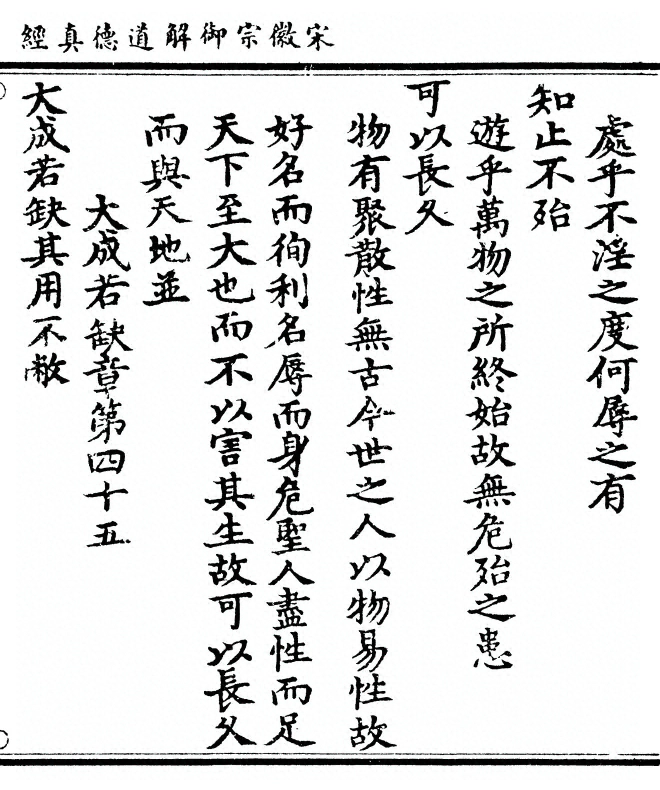 宋徽宗御解道德真經
處乎不淫之度何辱之有
知止不殆
遊乎萬物之所終始故無危殆之患
可以長久
物有聚散性無古今世之人以物易性故
好名而徇利名辱而身危聖人盡性而足
天下至大也而不以害其生故可以長久
而與天地並
大成若缺章第四十五
大成若缺其用不敝